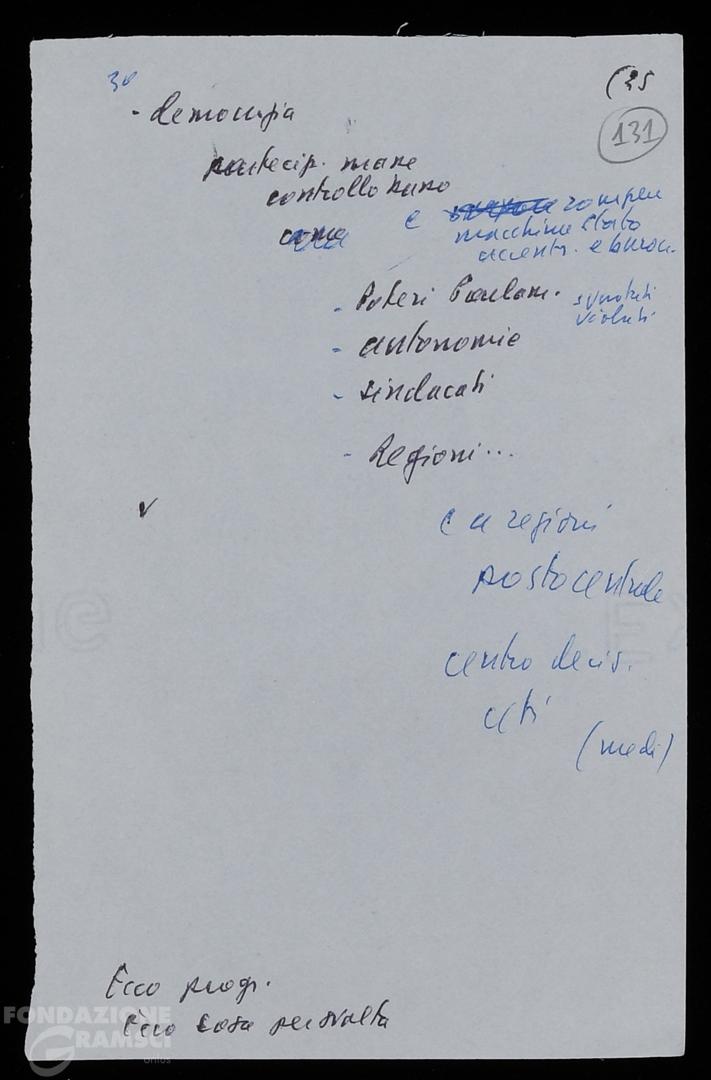 30
(35
131
- democrazia
partecip. masse
controllo basso
come
e rompere
macchina Stato
accentr. e buroc.
- Poteri Parlam. svuotati
violati
- autonomie
- sindacati
- Regioni...
v
e a regioni
posto centrale
centro decis.
(medi)
Ecco progr.
Ecco cosa per svolta
FONDAZIONE
GRAMSCI
onlus